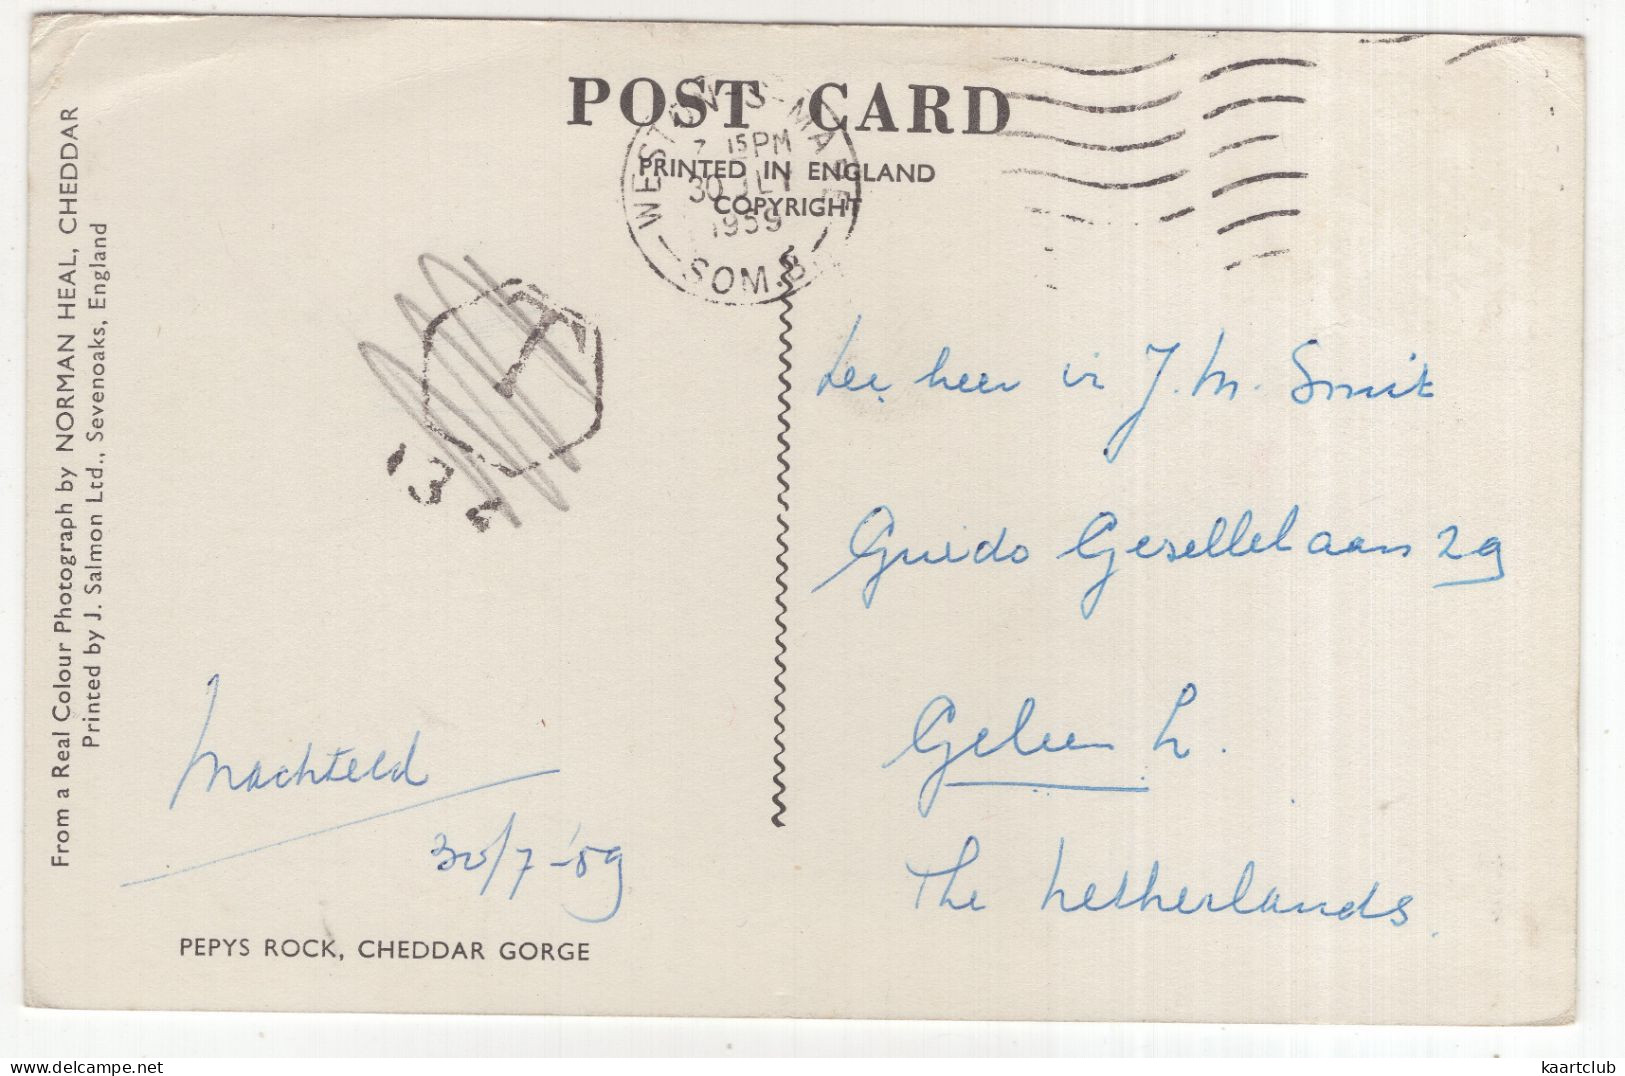 POST CARD
PRINTED IN ENGLAND
COPYRIGHT
WESTON-S-MARE
7 15 PM
30 JLY
1959
SOM.
From a Real Colour Photograph by NORMAN HEAL, CHEDDAR
Printed by J. Salmon Ltd., Sevenoaks, England
T
13
heer ir J. M. Smit
Guido Gezellelaan 29
Geleen L.
The Netherlands.
Machteld
30/7-'59
PEPYS ROCK, CHEDDAR GORGE
kaartclub
www.delcampe.net